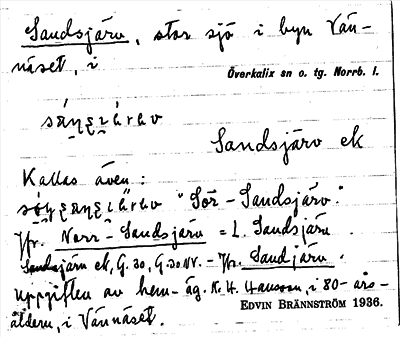 Sandsjärv, stor sjö i byn Vän-
näset, i
Överkalix sn o. tg. Norrb. l.
Sandsjärv ek
Kallas även:
"Sör-Sandsjärv."
Jfr. Norr-Sandsjärv = L. Sandsjärv.
Sandsjärv ek, G. 30, G. 30 NV. - Jfr. Sandjärv.
uppgiften av hem.-äg. K. H. Hansson, i 80-års-
åldern, i Vännäset.
EDVIN BRÄNNSTRÖM 1936.